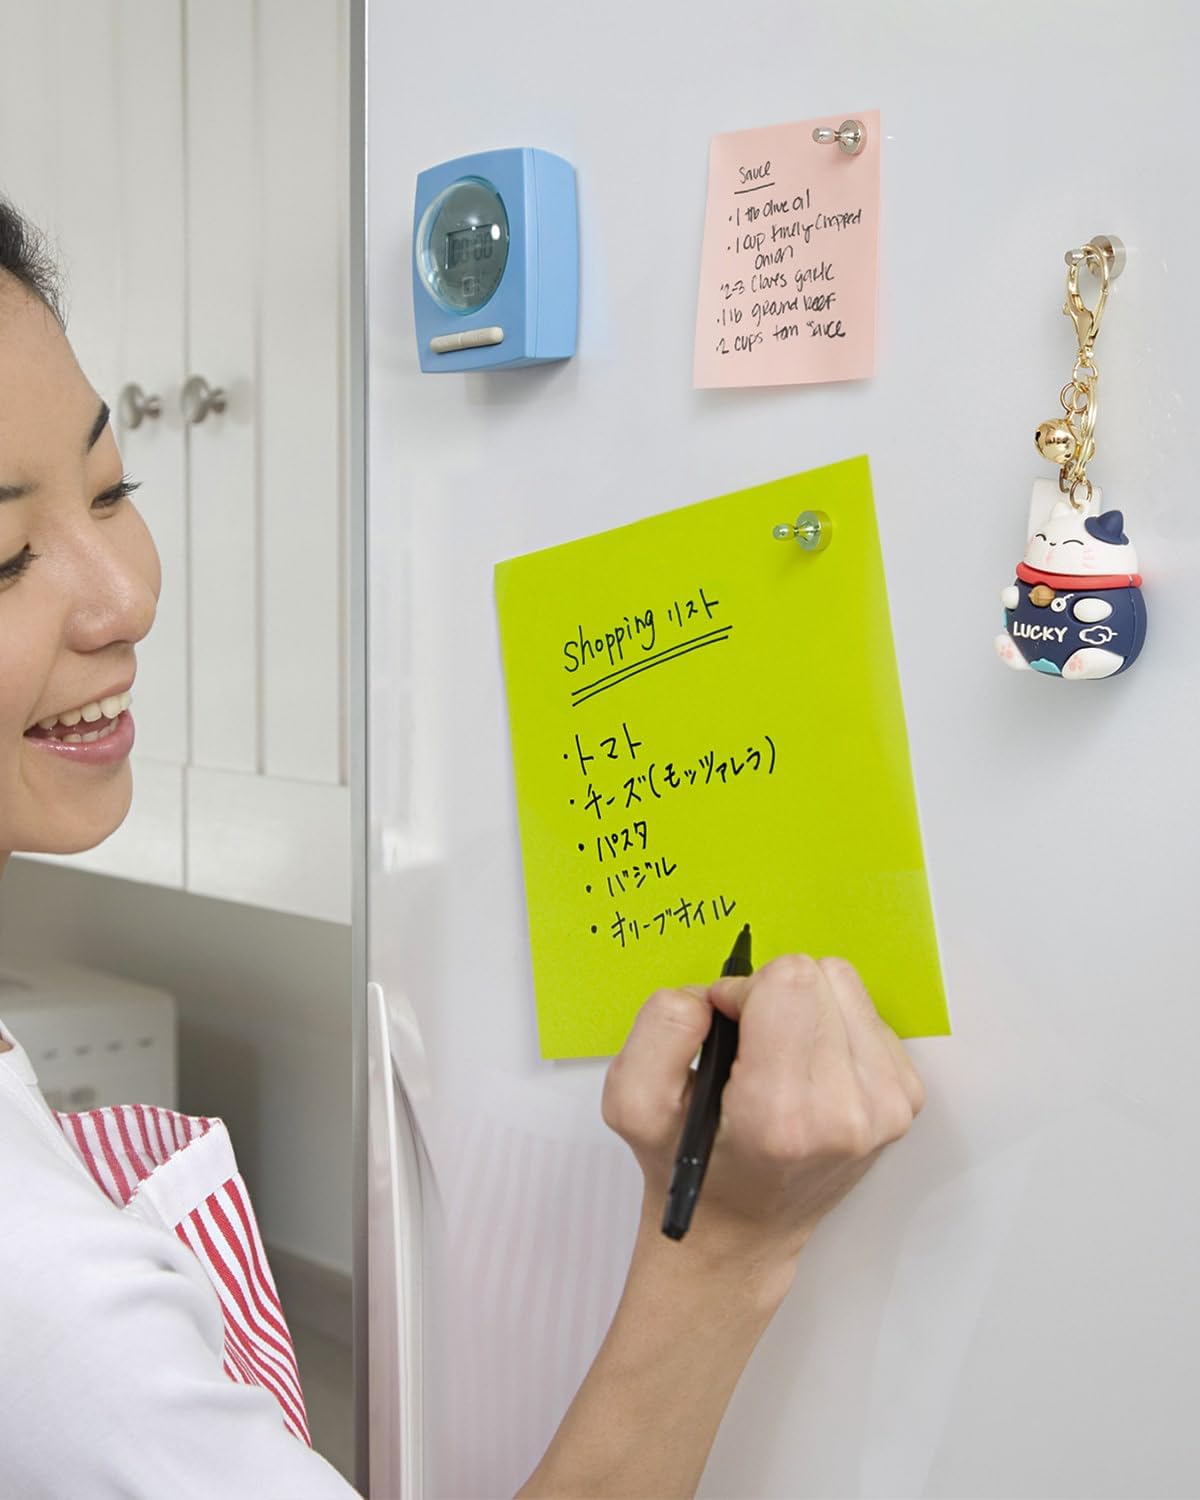 00:00
Sauce
• 1 ttb olive oil
• 1 cup finely chopped
onion
• 2-3 cloves garlic
• 1 lb ground beef
• 2 cups tom sauce
Shopping リスト
• トマト
• チーズ(モッツァレラ)
• パスタ
• バジル
• オリーブオイル
LUCKY